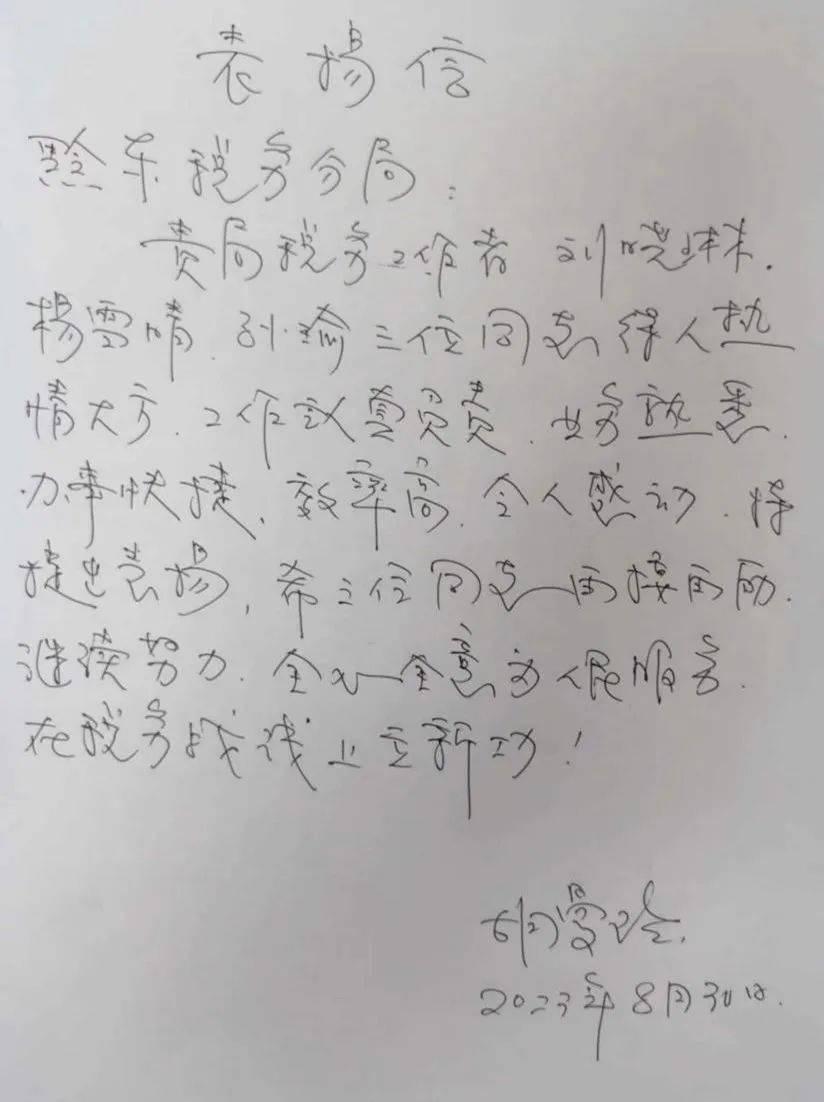 表揚信
黔东税务分局:
贵局税务工作者 刘晓琳.
楊雪晴.孙瑜三位同志待人热
情大方.工作认真负责.业务熟悉.
办事快捷,效率高.令人感动.特
提出表揚,希三位同志再接再励.
继续努力.全心全意为人民服务.
在税务战线上立新功!
胡曼
2023年8月30日.